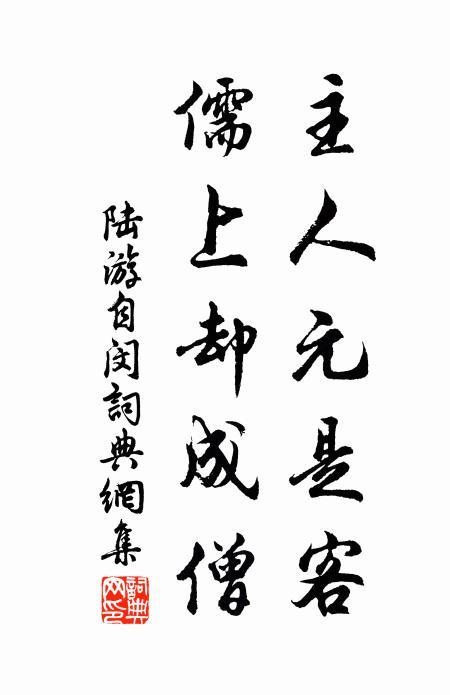 主人元是客
儒上却成僧
陆游自闵詞典網集
詞典網印